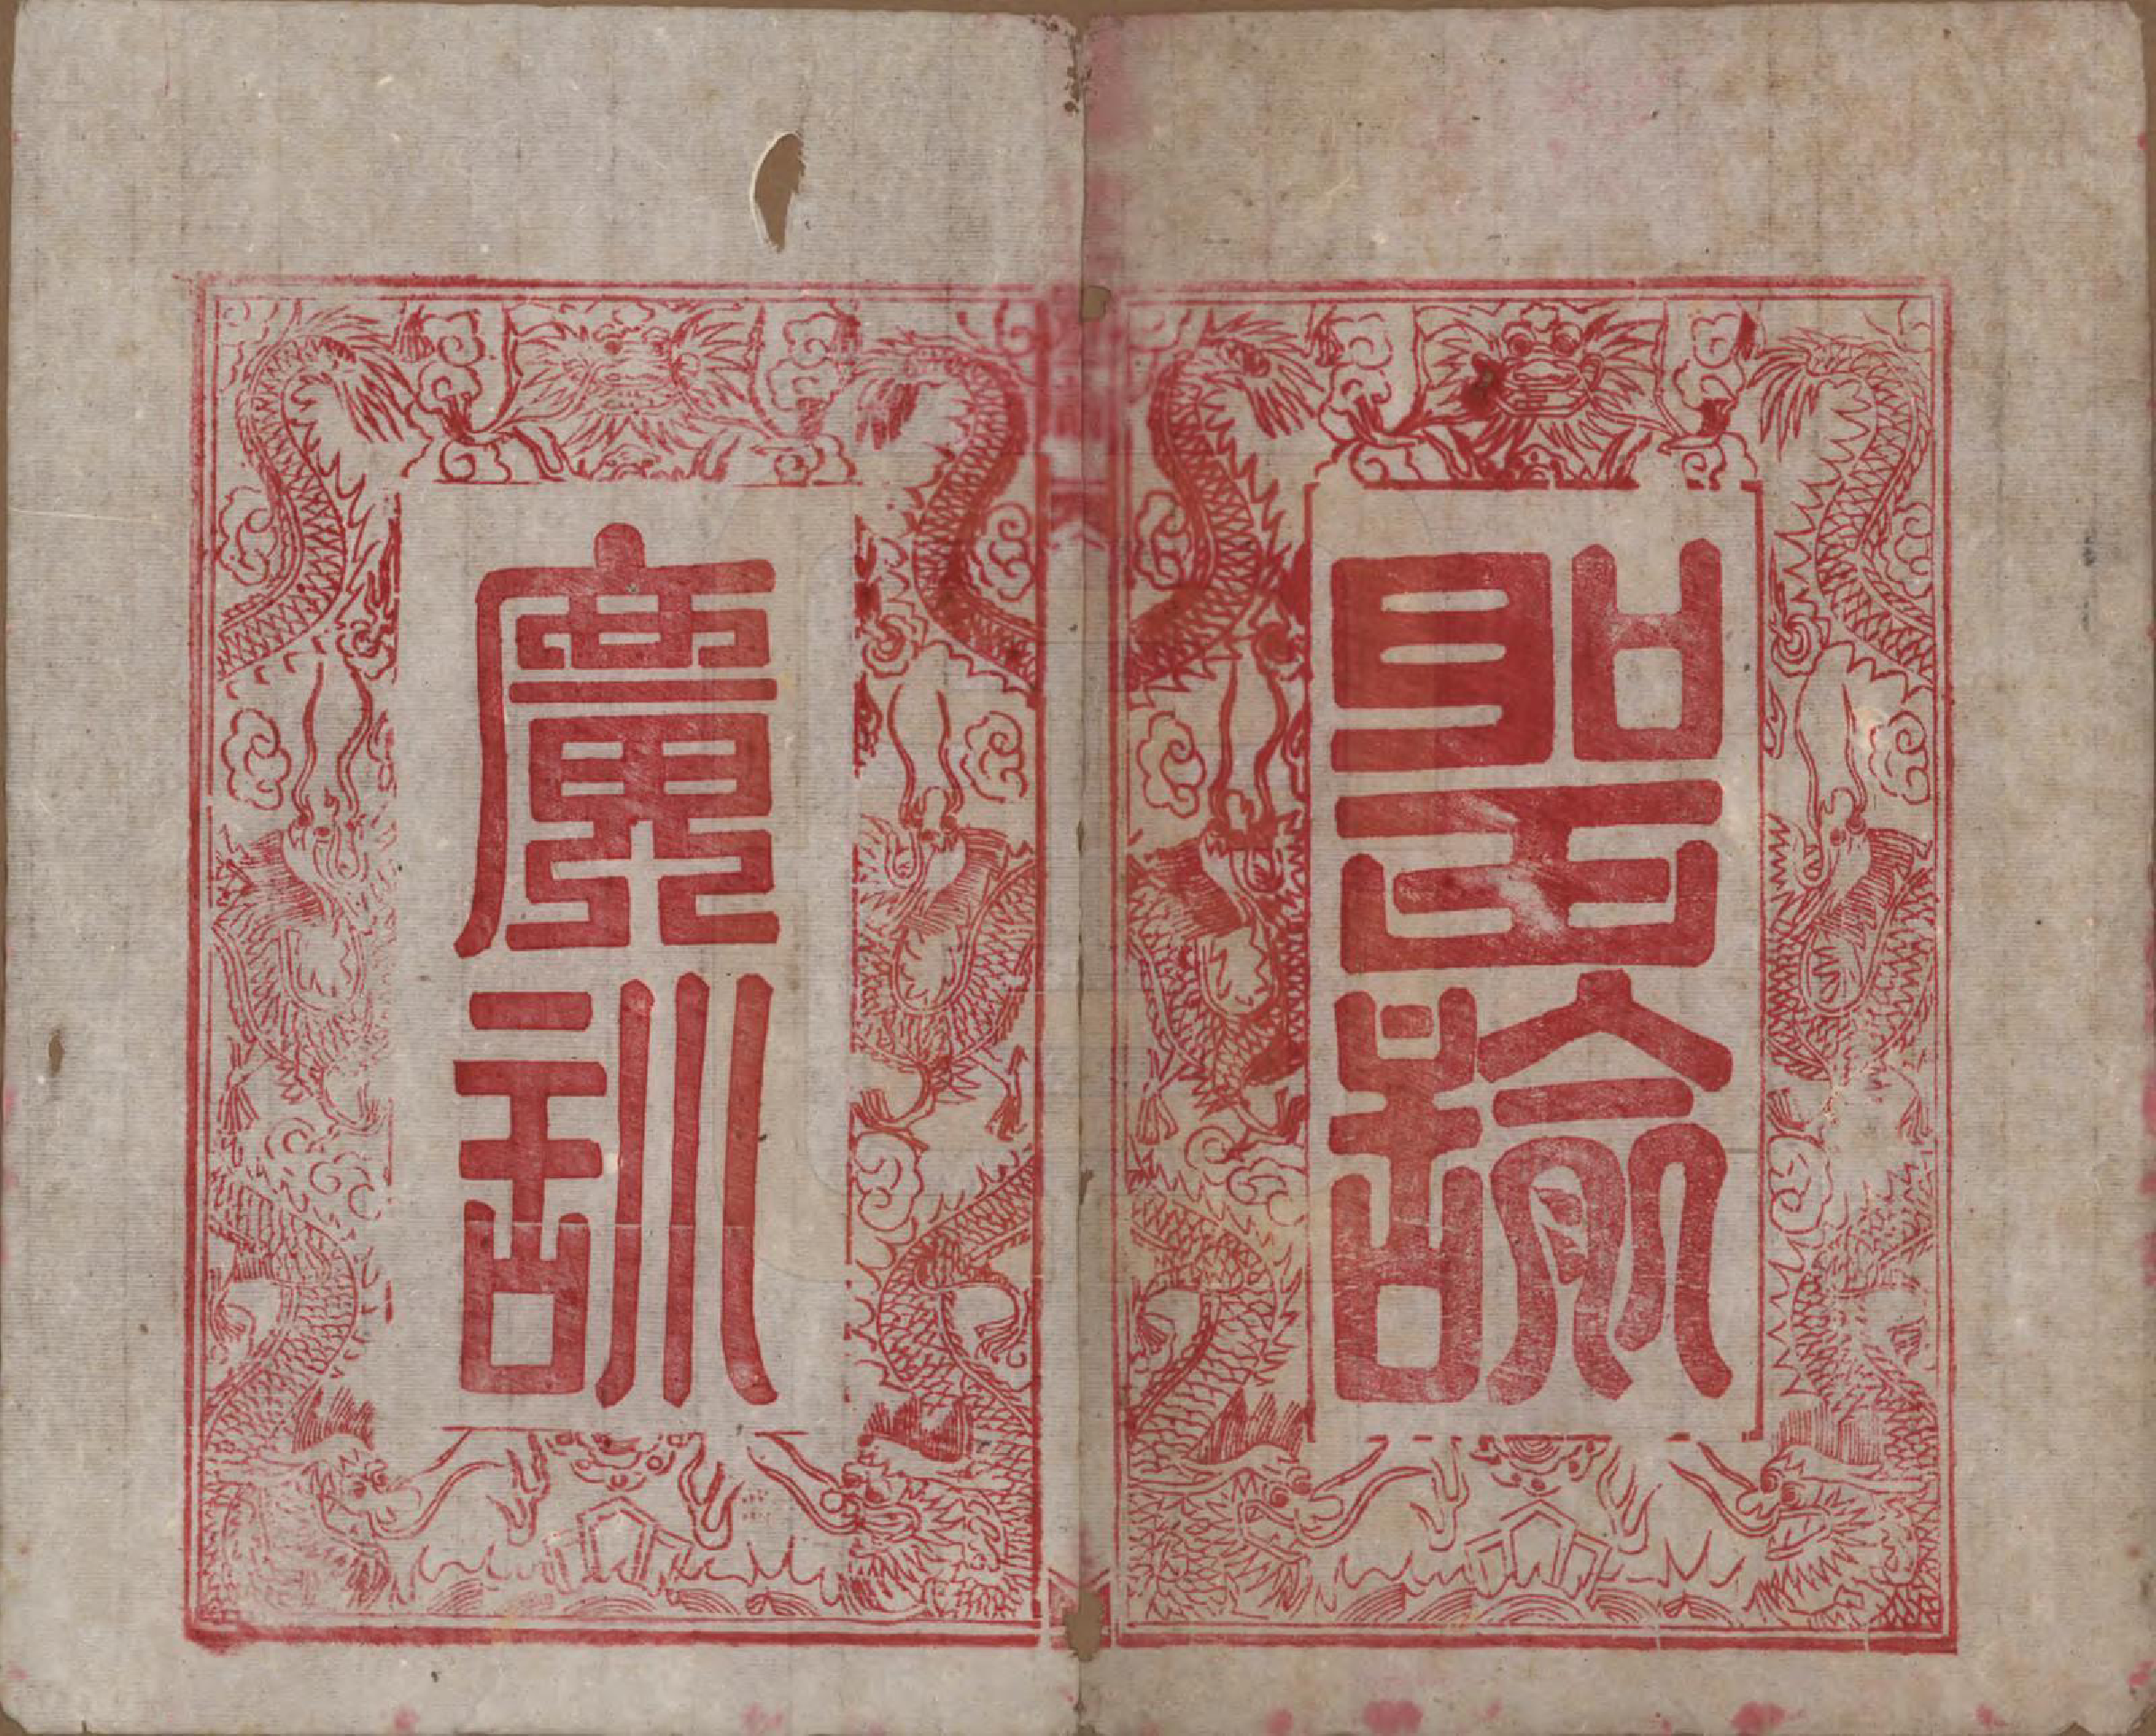 聖諭
廣訓